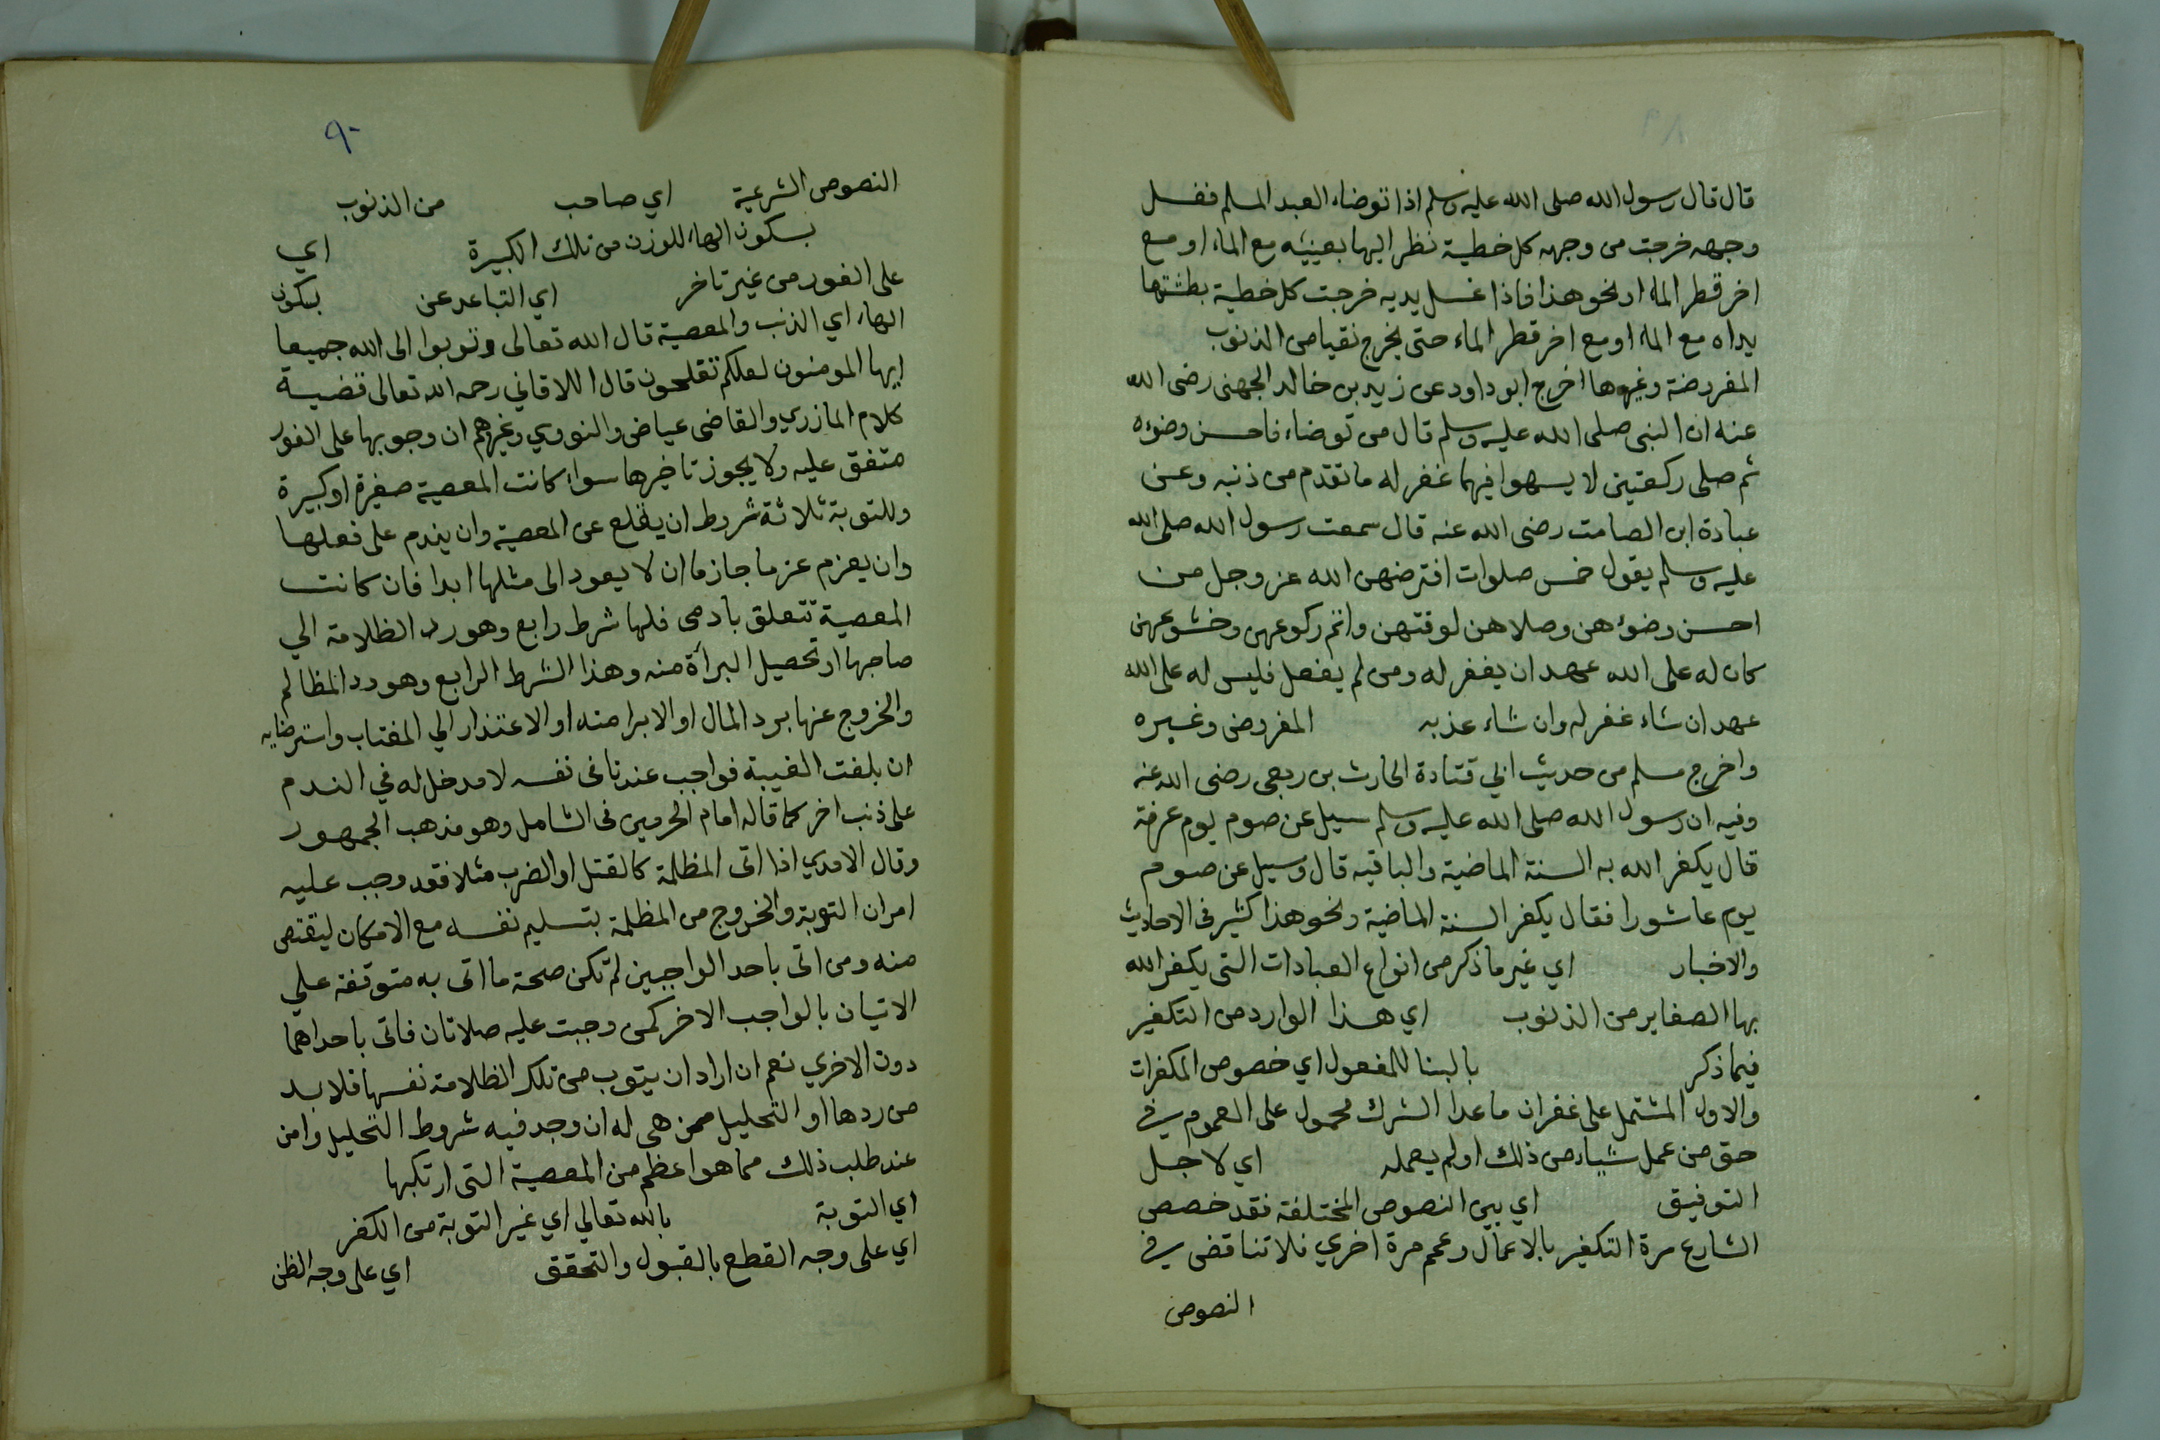 قال قال رسول الله صلى الله عليه وسلم اذا توضاء العبد المسلم فغسل
وجهه خرجت من وجهه كل خطية نظر اليها بعينيه مع الماء او مع
اخر قطر الماء او نحو هذا فاذا غسل يديه خرجت كل خطية بطشتها
يداه مع الماء او مع اخر قطر الماء حتى يخرج نقيا من الذنوب
المفروضة وغيرها اخرج ابو داود عن زيد بن خالد الجهني رضى الله
عنه ان النبي صلى الله عليه وسلم قال من توضاء فاحسن وضوءه
ثم صلى ركعتين لا يسهوا فيهما غفر له ما تقدم من ذنبه وعن
عبادة ابن الصامت رضى الله عنه قال سمعت رسول الله صلى الله
عليه وسلم يقول خمس صلوات افترضهن الله عز وجل من
احسن وضوءهن وصلاهن لوقتهن واتم ركوعهن وخشوعهن
كان له على الله عهد ان يغفر له ومن لم يفعل فليس له على الله
عهد ان شاء غفر له وان شاء عذبه المفروض وغيره
واخرج مسلم من حديث ابي قتادة الحارث بن ربعي رضى الله عنه
وفيه ان رسول الله صلى الله عليه وسلم سيل عن صوم يوم عرفة
قال يكفر الله به السنة الماضية والباقيه قال وسيل عن صوم
يوم عاشورا فقال يكفر السنة الماضية ونحو هذا كثير فى الاحاديث
والاخبار اي غير ما ذكر من انواع العبادات التي يكفر الله
بها الصغاير من الذنوب اي هذا الوارد من التكفير
فيما ذكر بالبنا للمفعول اي خصوص المكفرات
والاول المشتمل على غفران ما عدا الشرك محمول على العموم في
حق من عمل شياء من ذلك او لم يعمله اي لاجل
التوفيق اي بين النصوص المختلفة فقد خصص
الشارع مرة التكفير بالاعمال وعمم مرة اخري فلا تناقض في
النصوص
٩٠
النصوص الشرعية اي صاحب من الذنوب
بسكون الهاء للوزن من تلك الكبيرة اي
على الفور من غير تاخر اي التباعد عن بسكون
الهاء اي الذنب والمعصية قال الله تعالى وتوبوا الى الله جميعا
ايها المومنون لعلكم تفلحون قال اللاقاني رحمه الله تعالى قضية
كلام المازري والقاضى عياض والنووي وغيرهم ان وجوبها على الفور
متفق عليه ولا يجوز تاخيرها سواء كانت المعصية صغيرة او كبيرة
وللتوبة ثلاثة شروط ان يقلع عن المعصية وان يندم على فعلها
وان يعزم عزما جازما ان لا يعود الى مثلها ابدا فان كانت
المعصية تتعلق بادمي فلها شرط رابع وهو رد الظلامة الي
صاحبها او تحصيل البرآة منه وهذا الشرط الرابع وهو رد المظالم
والخروج عنها برد المال او الابرا منه او الاعتذار الي المغتاب واسترضايه
ان بلغت الغيبة فواجب عندنا في نفسه لا مدخل له في الندم
على ذنب اخر كما قاله امام الحرمين فى الشامل وهو مذهب الجمهور
وقال الامدي اذا اتى المظلمة كالقتل او الضرب مثلا فقد وجب عليه
امران التوبة والخروج من المظلمة بتسليم نفسه مع الامكان ليقتص
منه ومن اتى باحد الواجبين لم تكن صحة ما اتى به متوقفة علي
الاتيان بالواجب الاخر كمن وجبت عليه صلاتان فاتى باحداهما
دون الاخري نعم ان اراد ان يتوب من تلك الظلامة نفسها فلا بد
من ردها او التحليل ممن هي له ان وجد فيه شروط التحليل وامن
عند طلب ذلك مما هو اعظم من المعصية التي ارتكبها
اي التوبة بالله تعالي اي غير التوبة من الكفر
اي على وجه القطع بالقبول والتحقق اي على وجه الظن